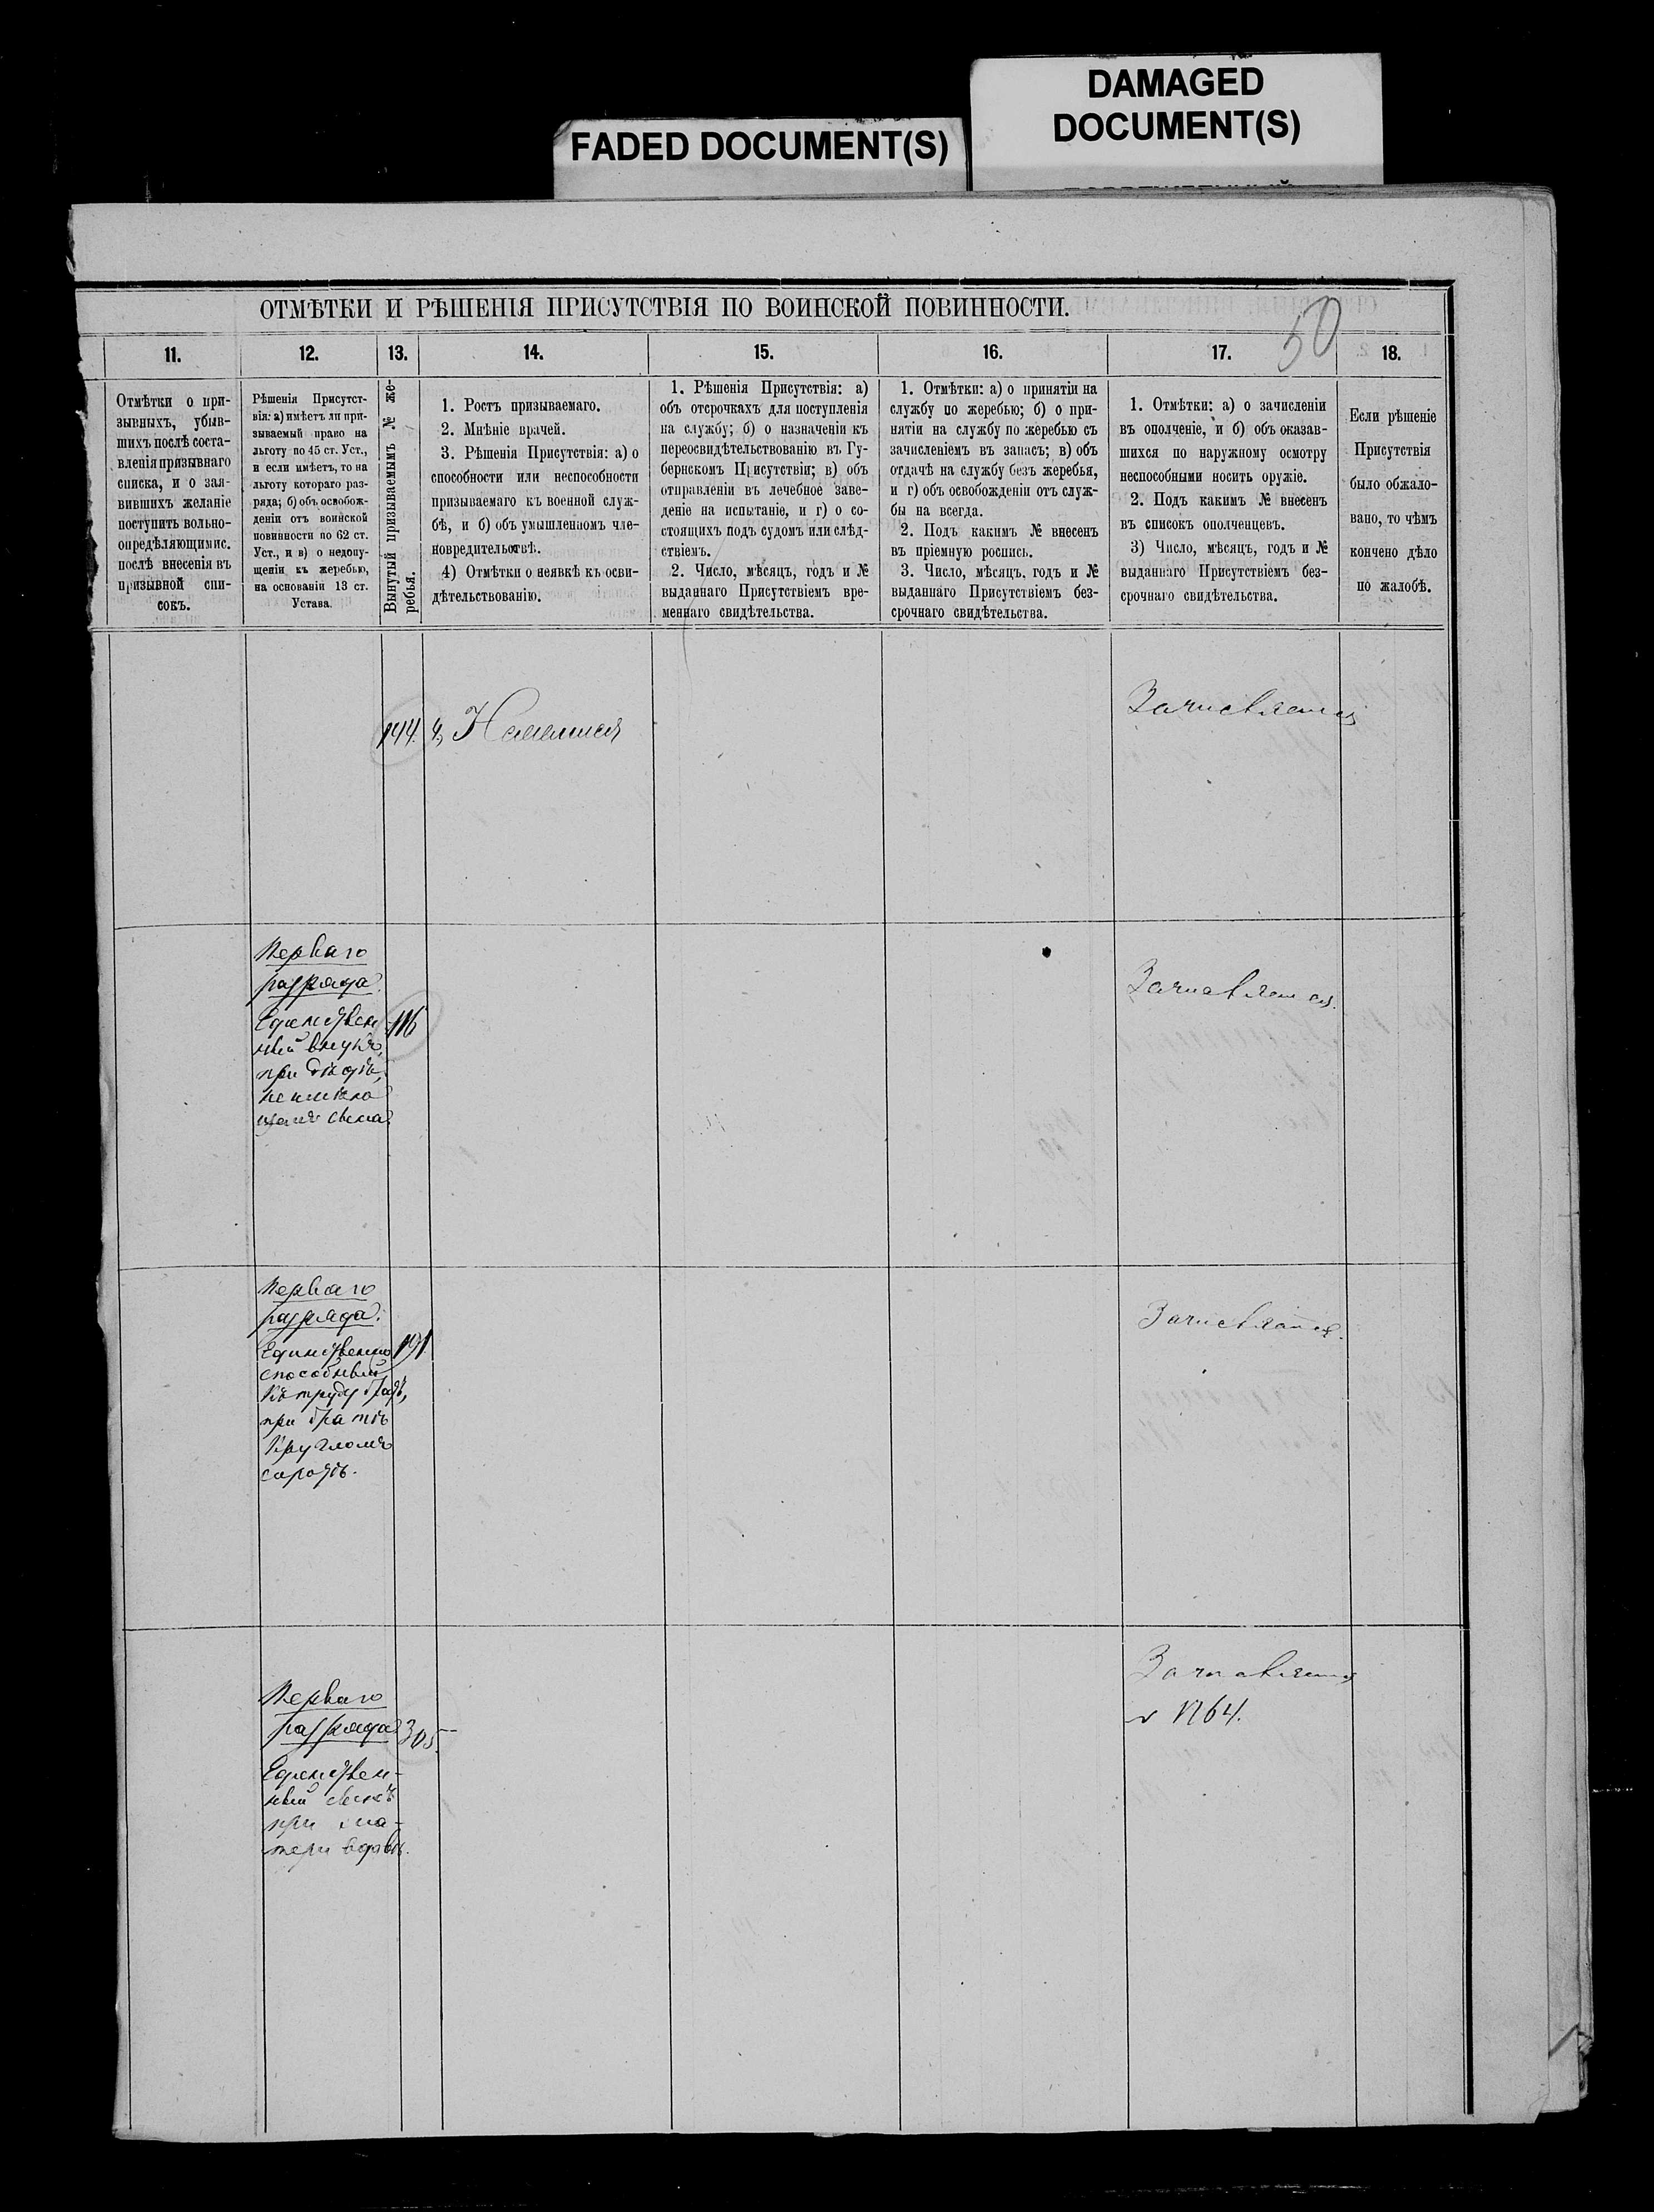 DAMAGED
DOCUMENT(S)
FADED DOCUMENT(S)
ОТМѢТКИ И РѢШЕНІЯ ПРИСУТСТВІЯ ПО ВОИНСКОЙ ПОВИННОСТИ.
50
11.
12.
13.
14.
15.
16.
17.
18.
Отмѣтки о при-
зывныхъ, убыв-
шихъ послѣ соста-
вленія призывнаго
списка, и о зая-
вившихъ желаніе
поступить вольно-
опредѣляющимис.
послѣ внесенія въ
призывной спи-
сокъ.
Рѣшенія Присутст-
вія: а) имѣетъ ли при-
зываемый право на
льготу по 45 ст. Уст.,
и если имѣетъ, то на
льготу котораго раз-
ряда; б) объ освобож-
деніи отъ воинской
повинности по 62 ст.
Уст., и в) о недопу-
щеніи къ жеребью,
на основаніи 13 ст.
Устава.
Вынутый призываемымъ № же-
ребья.
1. Ростъ призываемаго.
2. Мнѣніе врачей.
3. Рѣшенія Присутствія: а) о
способности или неспособности
призываемаго къ военной служ-
бѣ, и б) объ умышленномъ чле-
новредительствѣ.
4) Отмѣтки о неявкѣ къ осви-
дѣтельствованію.
1. Рѣшенія Присутствія: а)
объ отсрочкахъ для поступленія
на службу; б) о назначеніи къ
переосвидѣтельствованію въ Гу-
бернскомъ Присутствіи; в) объ
отправленіи въ лечебное заве-
деніе на испытаніе, и г) о со-
стоящихъ подъ судомъ или слѣд-
ствіемъ.
2. Число, мѣсяцъ, годъ и №
выданнаго Присутствіемъ вре-
меннаго свидѣтельства.
1. Отмѣтки: а) о принятіи на
службу по жеребью; б) о при-
нятіи на службу по жеребью съ
зачисленіемъ въ запасъ; в) объ
отдачѣ на службу безъ жеребья,
и г) объ освобожденіи отъ служ-
бы на всегда.
2. Подъ какимъ № внесенъ
въ пріемную роспись.
3. Число, мѣсяцъ, годъ и №
выданнаго Присутствіемъ без-
срочнаго свидѣтельства.
1. Отмѣтки: а) о зачисленіи
въ ополченіе, и б) объ оказав-
шихся по наружному осмотру
неспособными носить оружіе.
2. Подъ какимъ № внесенъ
въ списокъ ополченцевъ.
3) Число, мѣсяцъ, годъ и №
выданнаго Присутствіемъ без-
срочнаго свидѣтельства.
Если рѣшеніе
Присутствія
было обжало-
вано, то чѣмъ
кончено дѣло
по жалобѣ.
144.
Зачисляется
Перваго
разряда.
Единствен
ный внукъ,
при дѣдѣ,
неимѣю
щемъ сына
116
Зачисляется.
Перваго
разряда:
Единственно
способный
къ труду братъ,
при братѣ
кругломъ
сиротѣ.
191
Зачисляется.
Перваго
разряда
Единствен-
ный сынъ
при ма-
тери вдовѣ.
305
Зачисляется
№64.